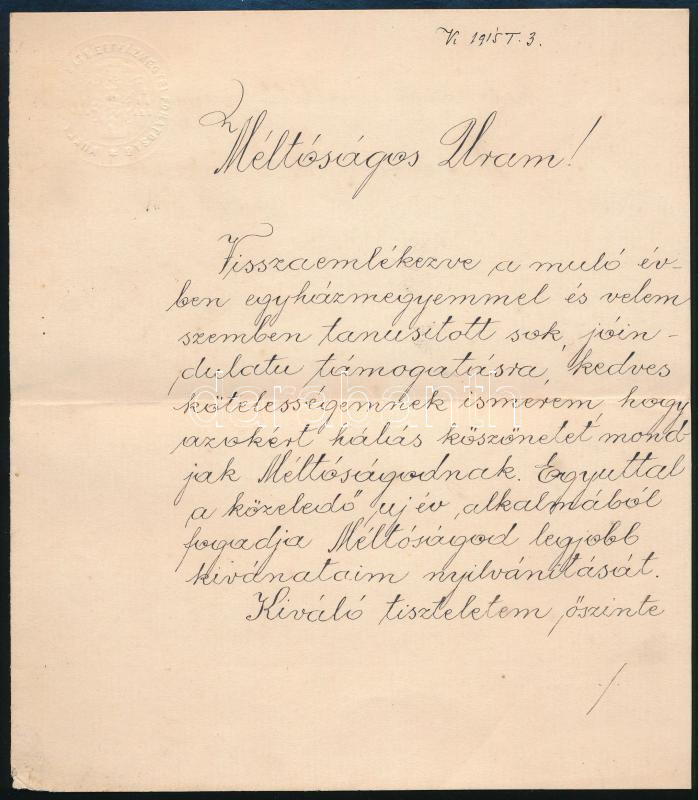 V. 1915 I. 3.
Méltóságos Uram!
Visszaemlékezve a muló év-
ben egyházmegyemmel és velem
szemben tanusitott sok, jóin-
dulatu támogatásra, kedves
kötelességemnek ismerem, hogy
azokért hálás köszönetet mond-
jak Méltóságodnak. Egyuttal
a közeledő uj év alkalmából
fogadja Méltóságod legjobb
kivánataim nyilvánitását.
Kiváló tiszteletem, őszinte
./.
darabanth